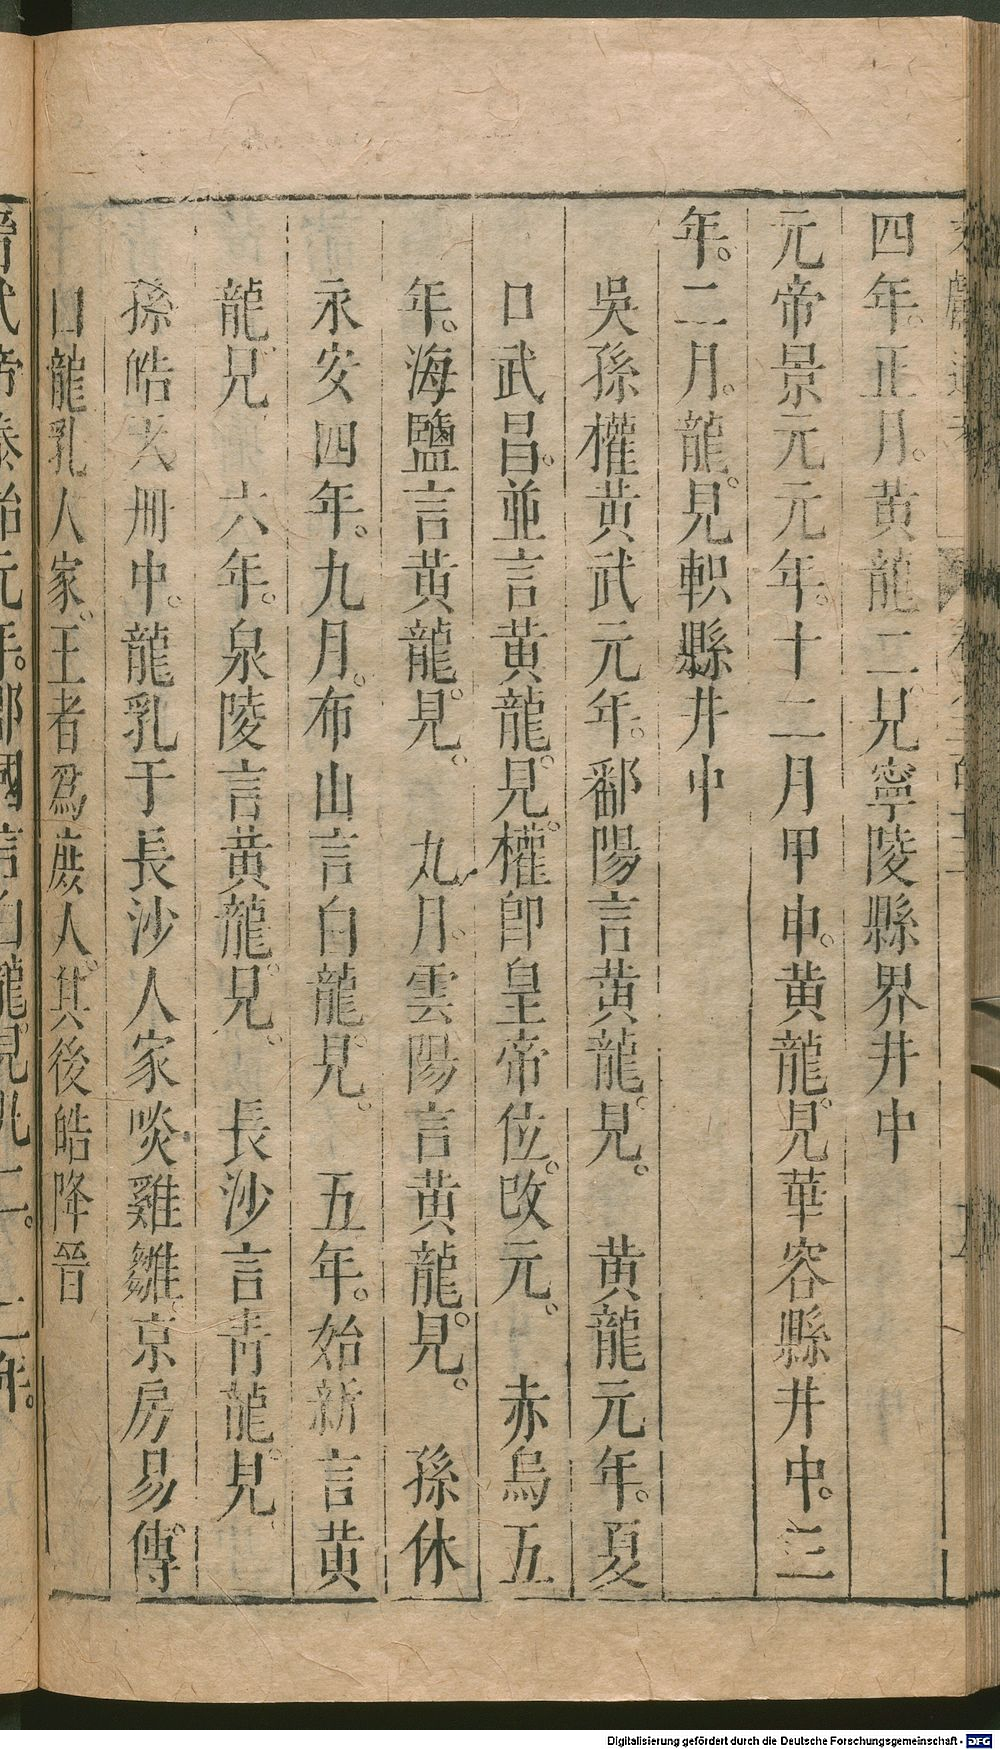 四年。正月。黄龍二。見寧陵縣界井中
元帝景元元年。十二月甲申。黄龍。見華容縣井中。三
年。二月。龍。見軹縣井中
吳孫權黄武元年。鄱陽言黄龍。見。　黄龍元年。夏
口武昌。並言黄龍。見。權卽皇帝位。改元。　赤烏五
年。海鹽言黄龍。見。　九月。雲陽言黄龍。見。　孫休
永安四年。九月。布山言白龍。見。　五年。始新言黄
龍。見　六年。泉陵言黄龍。見。　長沙言青龍。見
孫皓天冊中。龍乳于長沙人家啖雞雛。京房易。傳
曰龍乳人家。王者爲庶人。其後皓降晉
晉武帝泰始元年。郡國言白龍。見凡二。　二年。
Digitalisierung gefördert durch die Deutsche Forschungsgemeinschaft - DFG